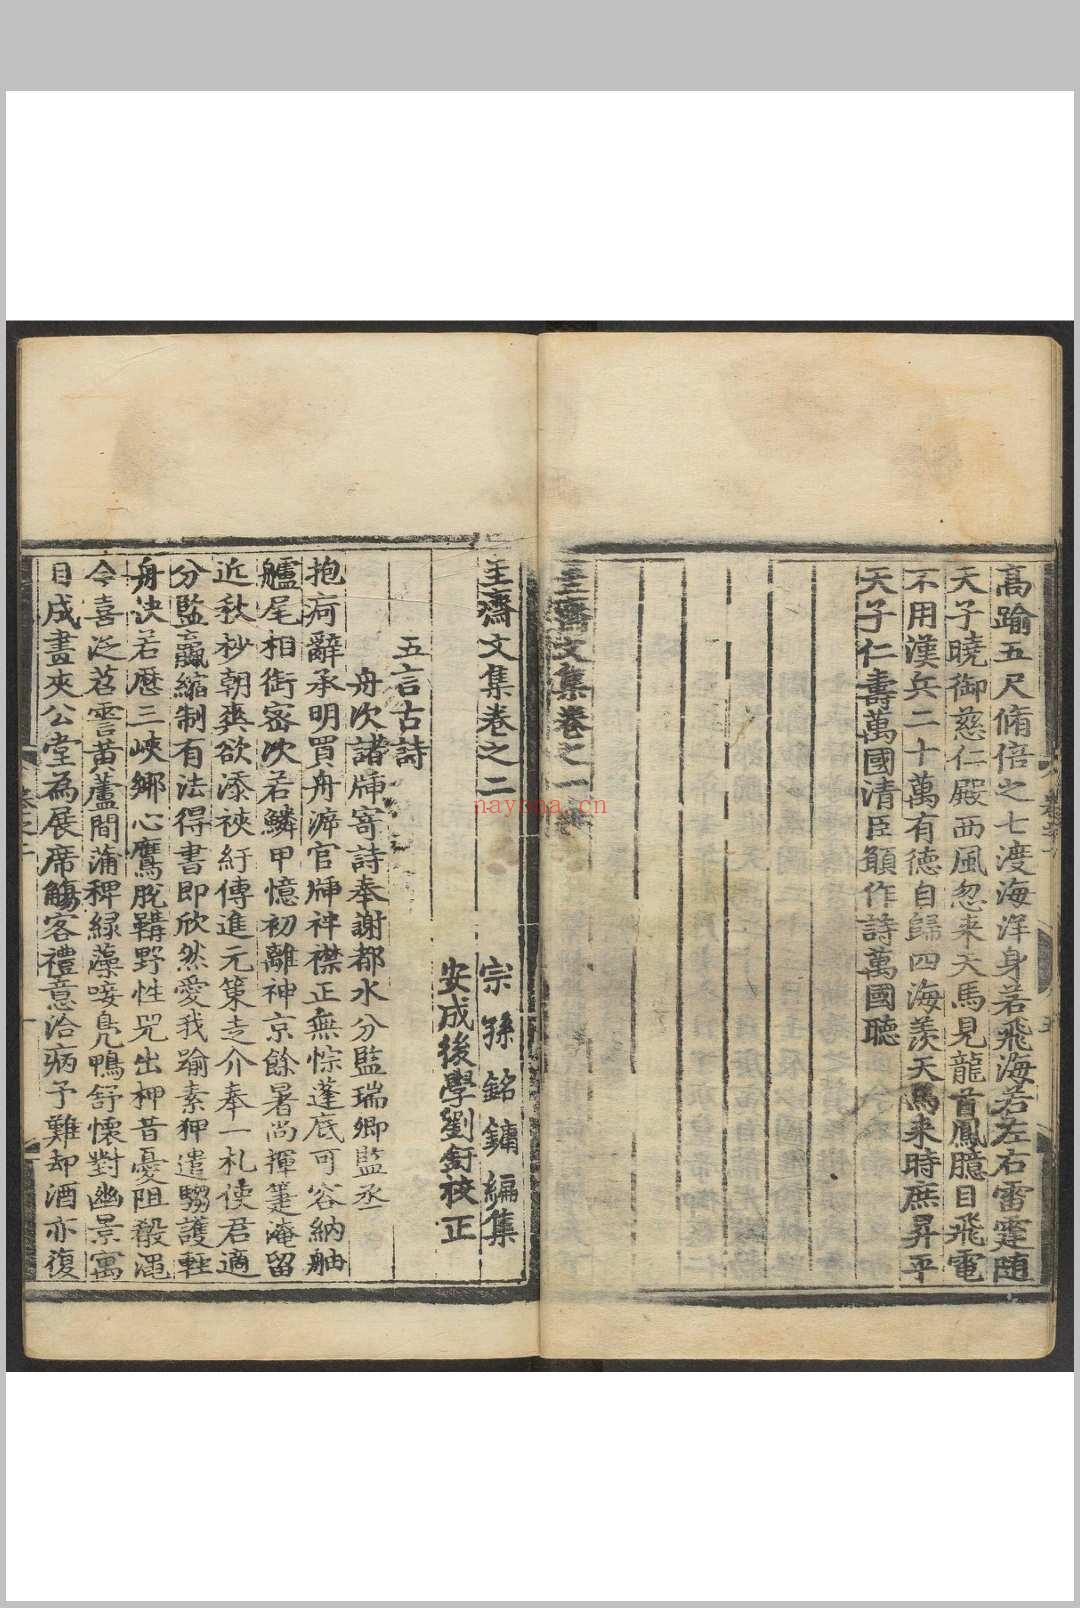 高踰五尺脩倍之七渡海洋身若飛海若左右雷霆随
天子曉御慈仁殿西風忽来天馬見龍首鳳臆目飛電
不用漢兵二十萬有德自歸四海羡天馬来時庶昇平
天子仁壽萬國清臣願作詩萬國聽
圭齋文集卷之一
圭齋文集卷之二
宗孫銘鏞編集
安成後學劉釪校正
五言古詩
舟次諸牐寄詩奉謝都水分監瑞卿監丞
抱痾辭承明買舟泝官牐袢襟正無悰蓬底可容納舳
艫尾相銜密次若鱗甲憶初離神京餘暑尚揮箑淹留
近秋杪朝爽欲添裌紆傳進元策走介奉一札使君適
分監贏縮制有法得書即欣然愛我踰素狎遣騶護輕
舟决若厯三峽鄉心鷹脱鞲野性兕出柙昔憂阻殽澠
今喜泛苕霅黄蘆間蒲稗緑藻唼鳧鴨舒懷對幽景寓
目成畫夾公堂為展席觴客禮意洽病予難却酒亦復
nayona.cn